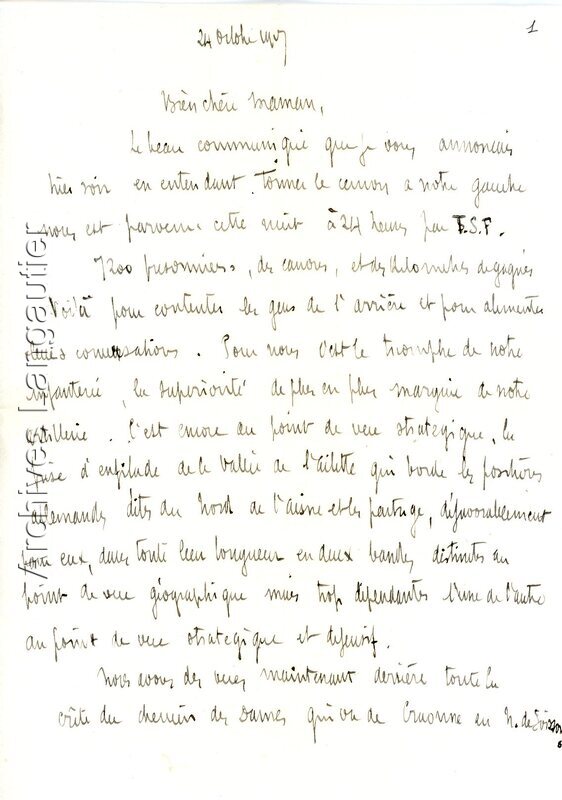 1
24 Octobre 1917
Bien chère maman,
Le beau communiqué que je vous annonçais
hier soir en entendant tonner le canon a notre gauche
nous est parvenu cette nuit à 24 heures par T.S.F.
7200 prisonniers, des canons, et des kilomètres de gagnés
Voilà pour contenter les gens de l'arrière et pour alimenter
conversations. Pour nous c'est le triomphe de notre
infanterie, la superiorité de plus en plus marquée de notre
artillerie. C'est encore au point de vue strategique, la
prise d'enfilade de la Vallée de l'ailette qui borde les positions
allemandes dites du Nord de l'aisne et les partage, défavorablement
pour eux, dans toute leur longueur en deux bandes distinctes au
point de vue géographique mais trop dépendantes l'une de l'autre
au point de vue strategique et defensif.
Nous avons des vues maintenant derrière toute la
crête du chemin des Dames qui va de Craonne au N. de Soissons
Archives Langautier